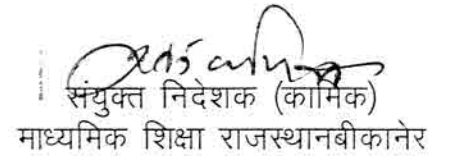 संयुक्त निदेशक (कार्मिक)
माध्यमिक शिक्षा राजस्थानबीकानेर